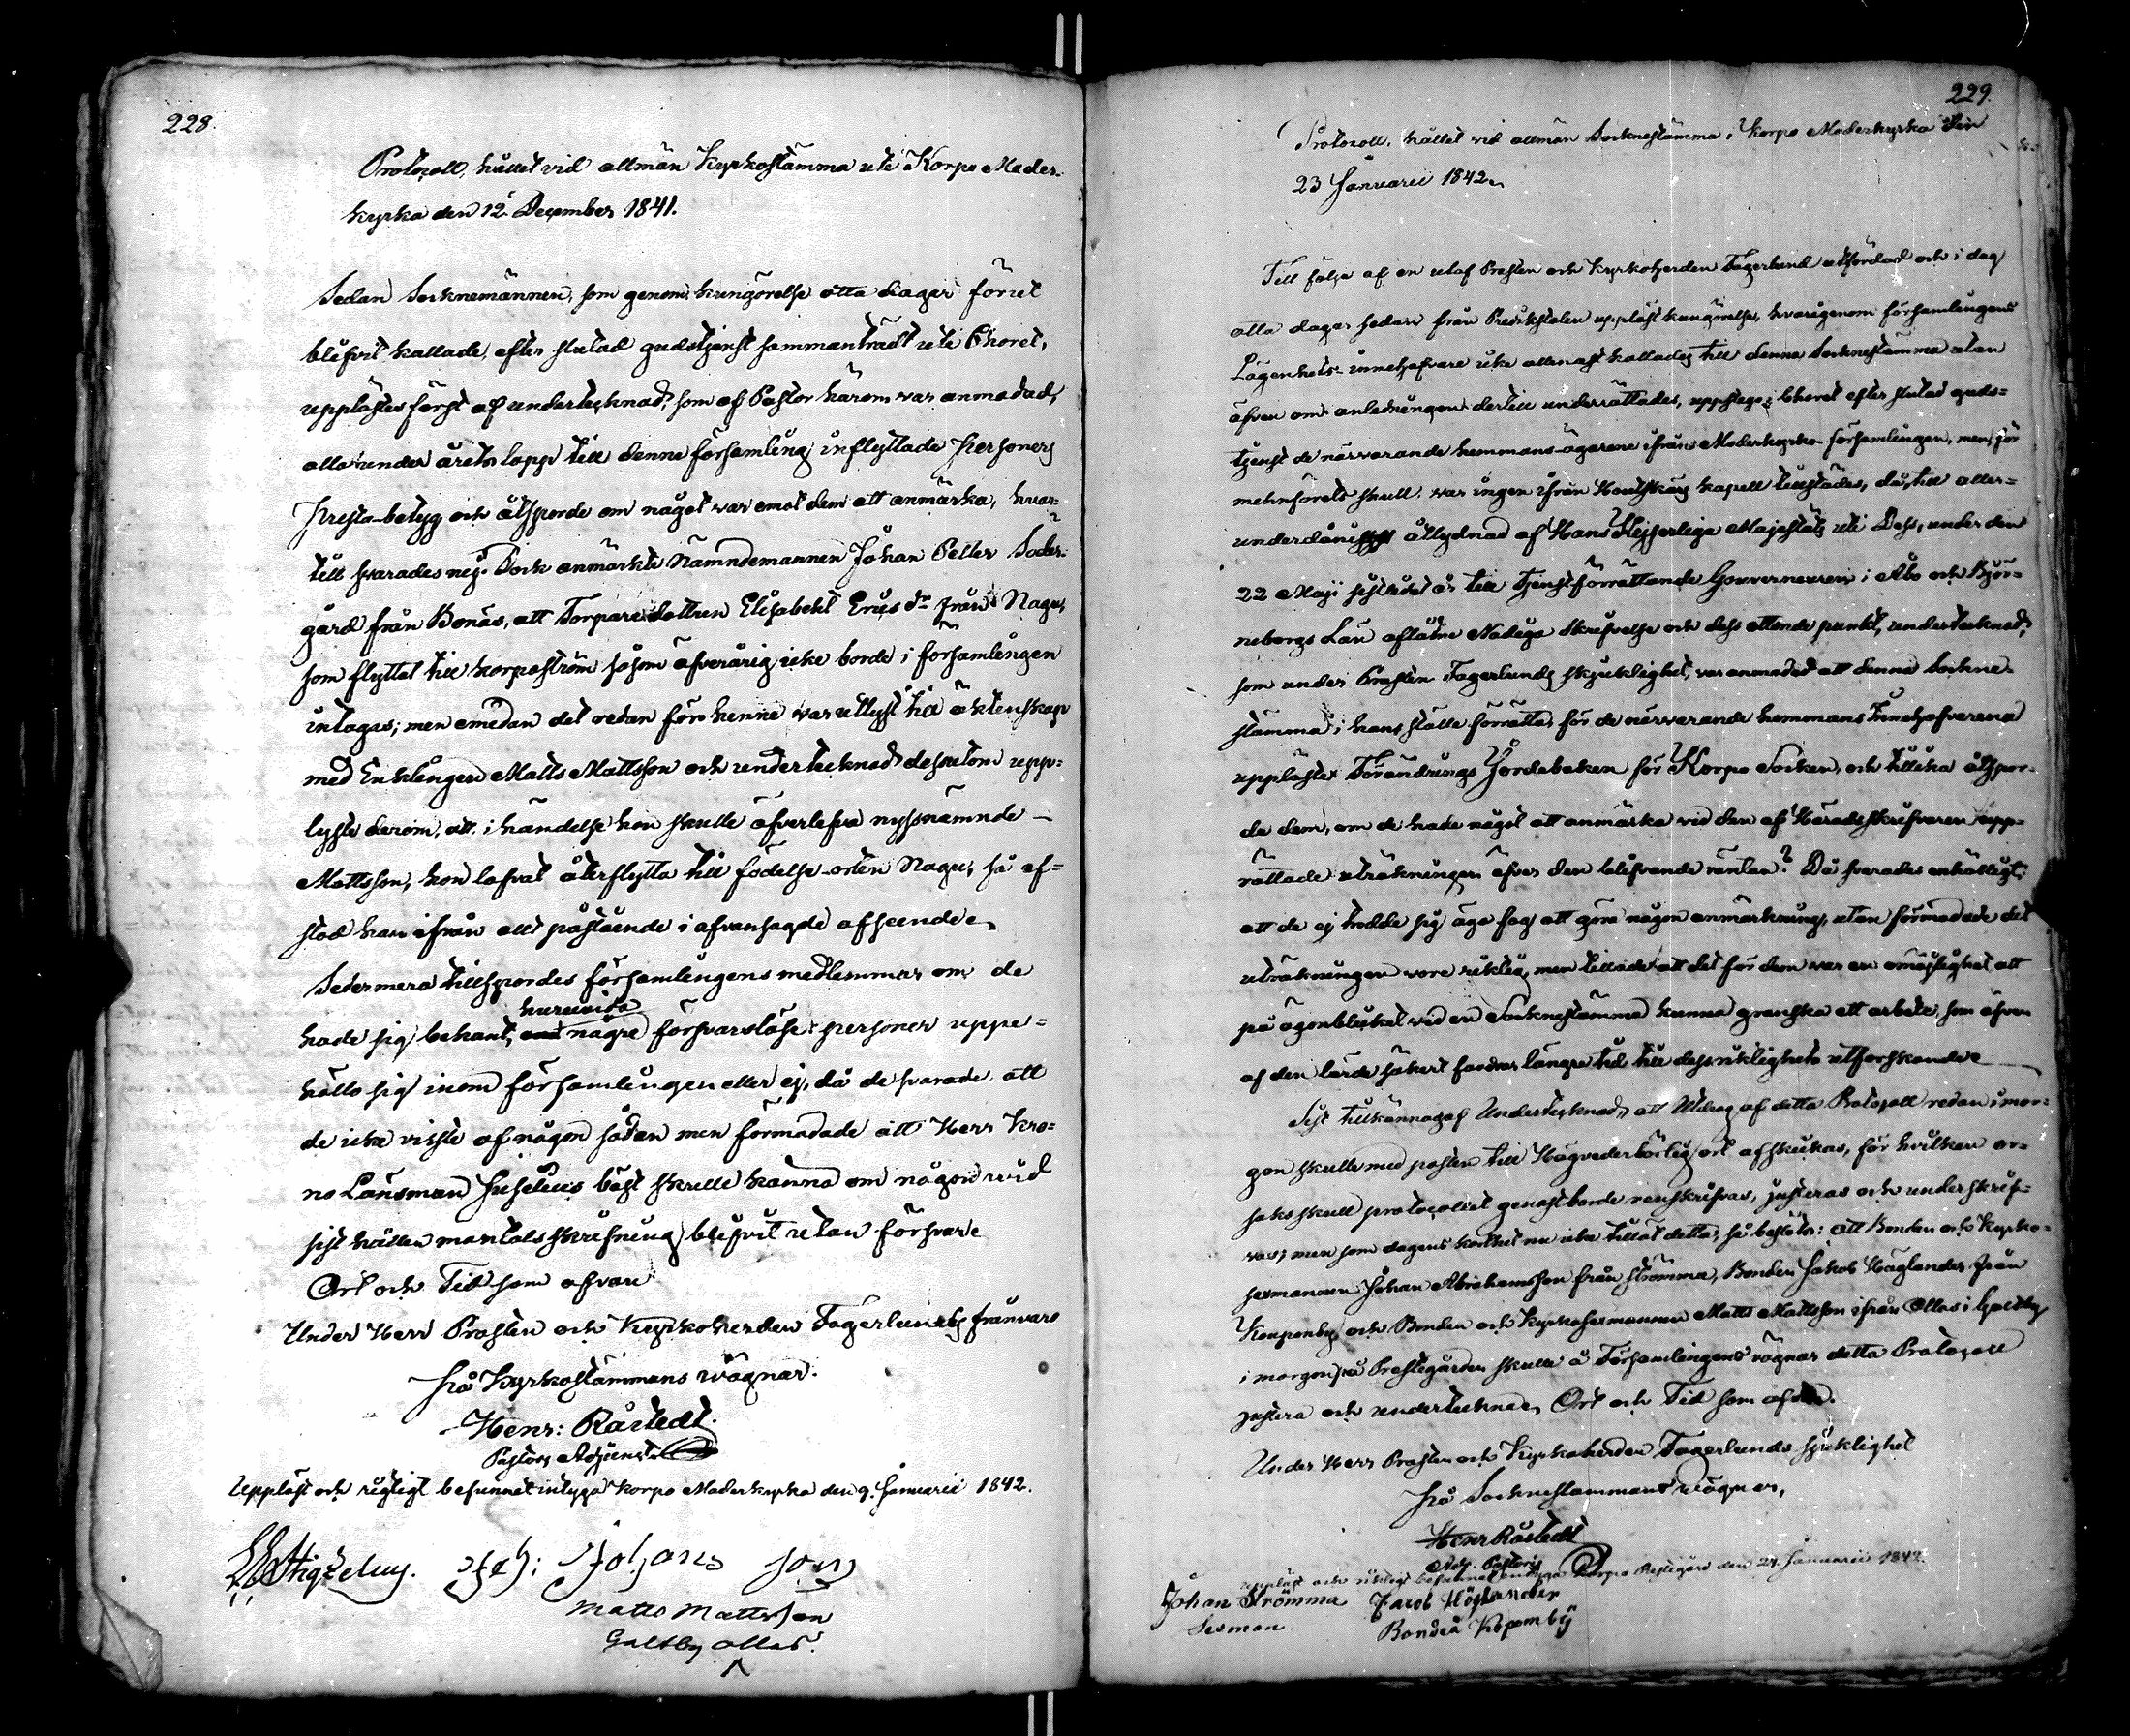 228.
Protocoll, hållet vid allmän Kyrkostämma uti Korpo Moder-
kyrka den 12 December 1841.
Sedan Socknemännen, som genom kungörelse åtta dagar förut
blifvit kallade, efter slutad gudstjenst sammanträdt uti Choret,
upplästes först af undertecknad, som af Pastor härom var anmodad,
alla under årets lopp till denne församling inflyttade personers
Presta-betyg och åtsporde om något var emot dem att anmärka, hvar-
till svarades nej. Dock anmärkte Nämndemannen Johan Petter Söder-
gård från Bonäs, att Torpare dottren Elisabeht Ericsdr från Nagu,
som flyttat till Korpoström såsom öfverårig icke borde i församlingen
intagas; men emedan det redan för henne var utlyst till äktenskap
med Enklingen Matts Mattsson och undertecknad dessutom upp-
lyste derom, att, i händelse hon skulle öfverlefva nyssnämnde
Mattsson, hon lofvat återflytta till födelse-orten Nagu, så af-
stod han ifrån allt påstående i ofvansagde afseende.
Sedermera tillspordes församlingens medlemmar om de
hade sig bekant, huruvida några försvarslöse personer uppe-
hållo sig inom församlingen eller ej, då de svarade, att
de icke visste af någon sådan men förmodade att Herr Kro-
no Länsman Juselius bäst skulle känna om någon vid
sist hållen mantalsskrifning blifvit utan försvar.
Ort och Tid som ofvan
Under Herr Prosten och Kyrkoherden Fagerlunds frånvaro
På Kyrkostämmans vägnar.
Henr: Råstedt.
Pastors Adjunct
Uppläst och rigtigt befunnet intyga Korpo Moderkyrka den 9. Januarii 1842.
Johans son
Matts Mattsson
Galtby ollas.
229.
Protocoll, hållet vid allmän Socknestämma i Korpo Moderkyrka den
23 Januarii 1842.
Till följe af en utaf Prosten och Kyrkoherden Fagerlund utfärdad och i dag
åtta dagar sedan från Predikstolen uppläst kungörelse, hvarigenom församlingens
Lägenhets-innehafvare icke allenast kallades till denna Socknestämma utan
äfven om anledningen dertill underrättades, uppstego i Choret efter slutad guds-
tjenst de närvarande hemmans-ägarene ifrån Moderkyrko församlingen, men för
menförets skull var ingen ifrån Houtskärs kapell tillstädes, då, till aller-
underdånigst åtlydnad af Hans Kejserliga Majestäts uti Dess, under den
22 Maji sistledet år till Tjenstförrättande Gouverneuren i Åbo och Björ-
neborgs Län aflåtne Nådiga Skrifvelse och dess ottonde punkt, undertecknad,
som under Prosten Fagerlunds sjuklighet, var anmodad att denna Sockne-
stämma i hans ställe förrätta, för de närvarande hemmans Innehafvarena
upplästes Förändrings Jordeboken för Korpo Socken, och tillika åtspor-
de dem, om de hade något att anmärka vid den af Häradsskrifvaren upp-
rättade uträkningen öfver den blifvande räntan? Då svarades enhälligt:
att de ej trodde sig äga fog att göra någon anmärkning, utan förmodade det
uträkningen vore riktig, men tillade att det för dem var en omöjlighet att
på ögonblicket vid en Socknestämma kunna granska ett arbete, som äfven
af den lärde säkert fordrar längre tid till dess riktighets utforskande.
Sist tillkännagaf Undertecknad, att Utdrag af detta Protocoll redan i mor-
gon skulle med posten till Högvederbörlig ort afskickas, för hvilken or-
saks skull protocollet genast borde renskrifvas, justeras och underskrif-
vas; men som dagens korthet nu icke tillät detta, så beslöts: att Bonden och Kyrko-
sexmannen Johan Abrahamsson från Strömma, Bonden Jakob Höglander från
Koupenby och Bonden och Kyrkosexmannen Matts Mattsson ifrån Ollas i Galtby
i morgon på Prostegården skulle å Församlingens vägnar detta Protocoll
justera och underteckna. Ort och Tid som ofvan.
Under Herr Prosten och Kyrkoherden Fagerlunds sjuklighet
På Socknestämmans vägnar,
Henr Råstedt
Adj. Pastoris
Uppläst och riktigt befunnet intyga Korpo Prestgård den 24. Januarii 1842.
Johan Strömma Jacob Höglander
Sexman. Bonden Kopomby